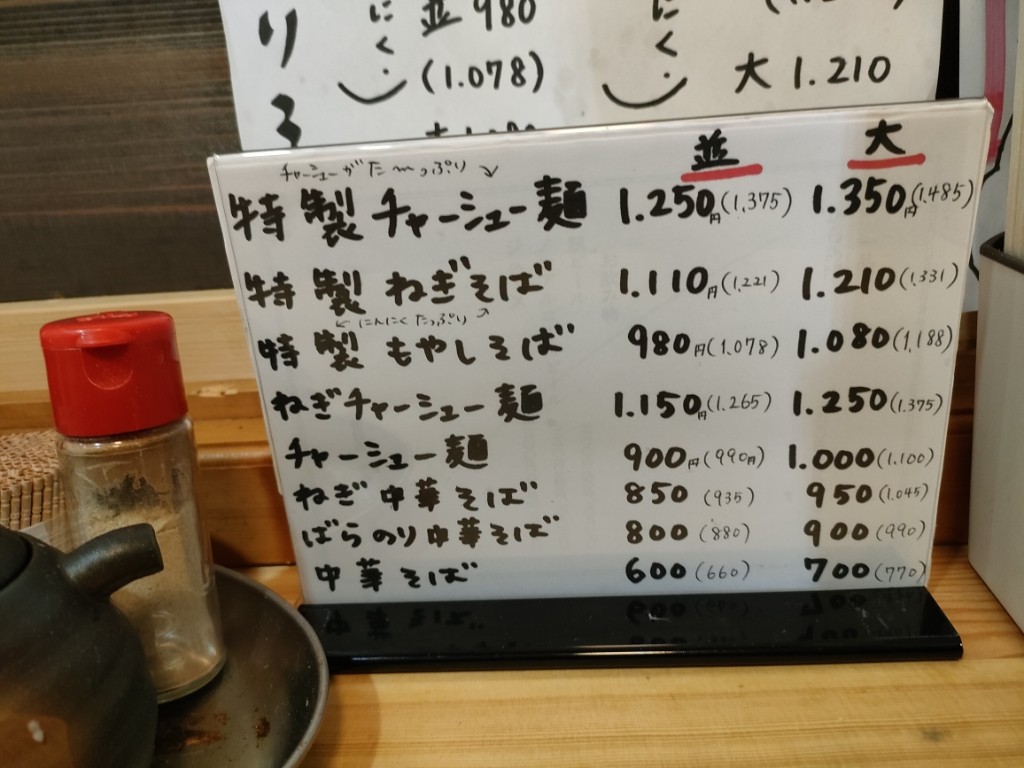 り
ろ
にく
並 980
(1.078)
にく
大 1.210
並 大
チャーシューがた〜っぷり↘
特製チャーシュー麺 1.250円(1.375) 1.350円(1.485)
特製ねぎそば 1.110円(1.221) 1.210(1.331)
にんにくたっぷり
特製もやしそば 980円(1.078) 1.080(1.188)
ねぎチャーシュー麺 1.150円(1.265) 1.250(1.375)
チャーシュー麺 900円(990円) 1.000(1.100)
ねぎ中華そば 850(935) 950(1.045)
ばらのり中華そば 800(880) 900(990)
中華そば 600(660) 700(770)